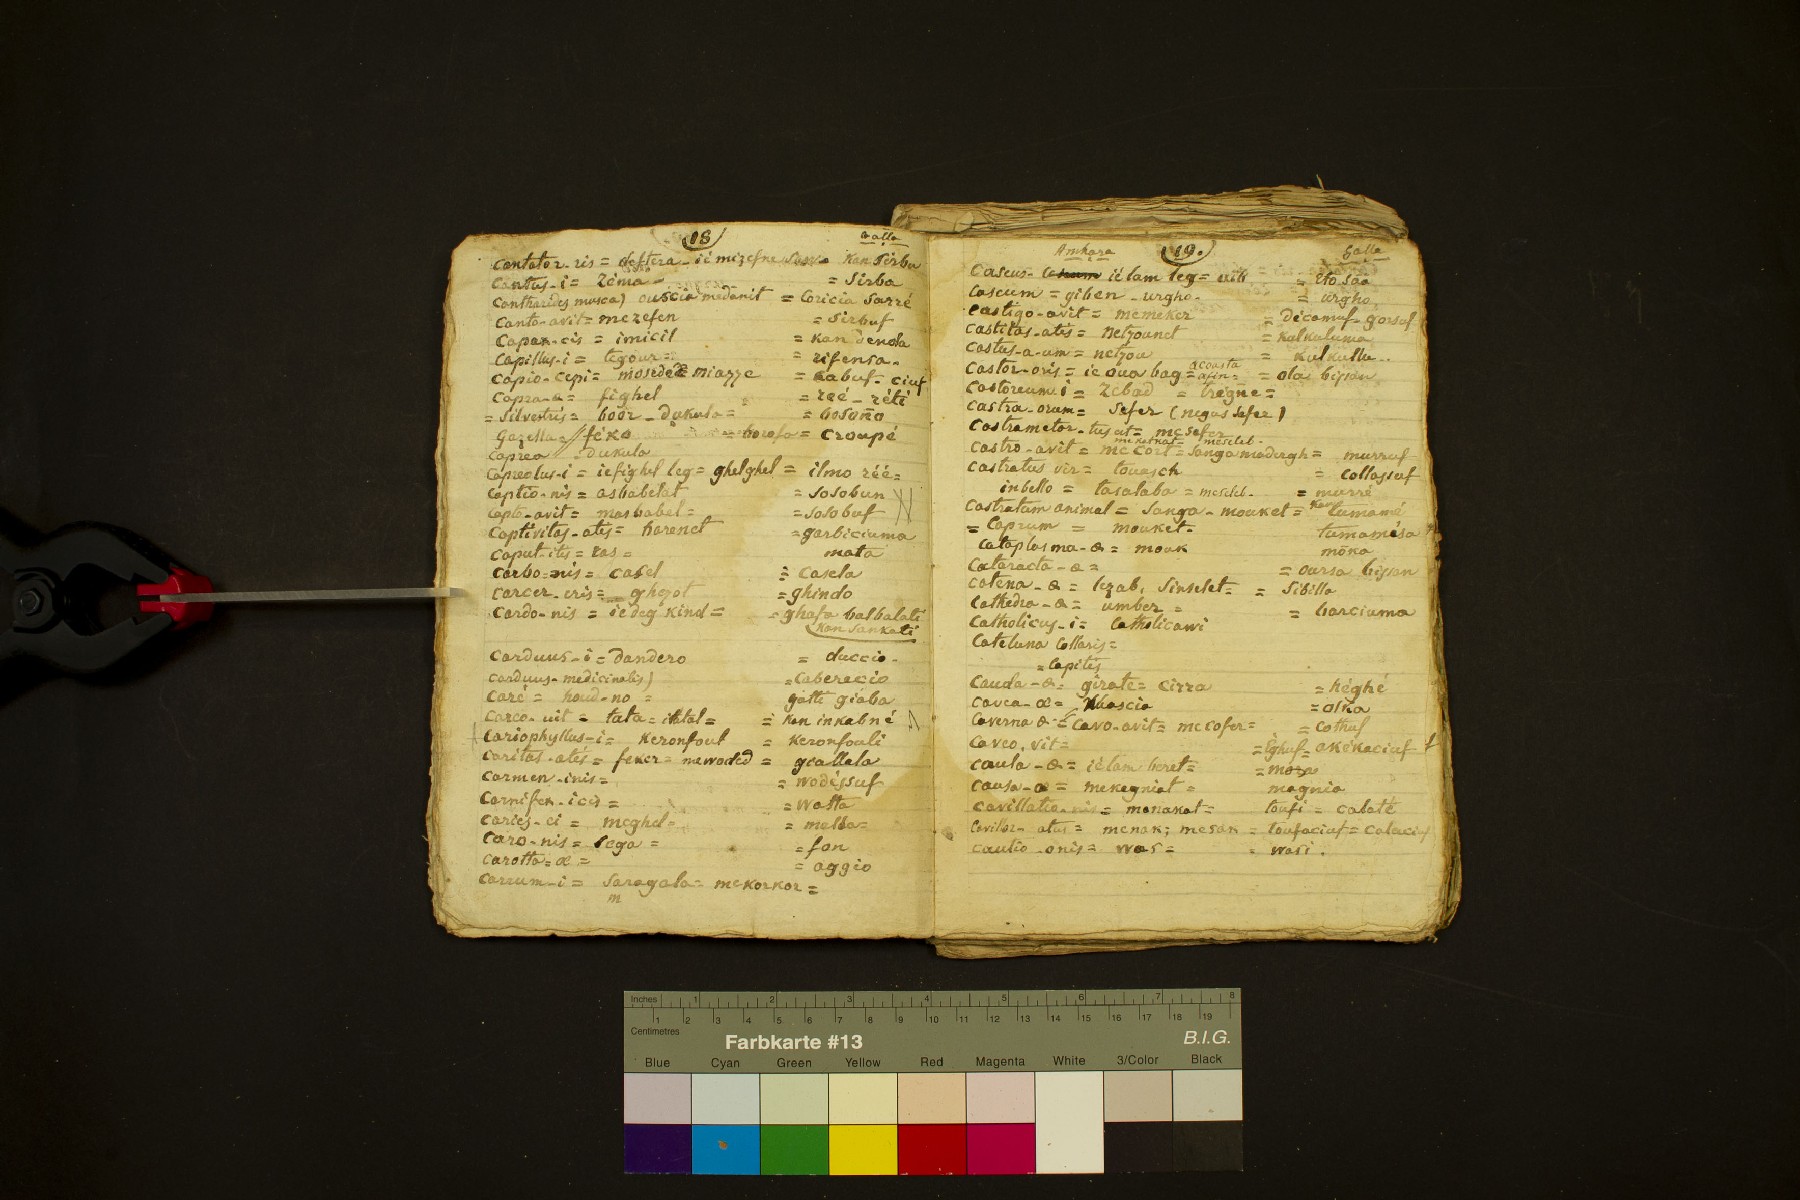 18
Galla
Cantator-ris = deftera - ié mizefne = Kan Sirbu
Cantus-i = Zéma = Sirba
Cantharides musca) ouscia medanit = Coricia Sarré
Canto-avit = mezefen = Sirbuf
Capax-cis = imicil = Kan Denda
Capillus-i = tégour = = rifensa-
Capio-cepi = miazze = Kabuf = ciuf
Capra-a = fighel = réé - réti
= Silvestris = boör - Dukula = = bosoño
Gazella = féko = Croupé
Caprea = dukula
Capreolus-i = iefighel leg = ghelghel = ilmo réé =
Captio-nis = asbabelat = Sosobun
Capto-avit = masbabel = = Sosobuf
Captivitas-atis = harenet = garbiciuma
Caput-itis = ras = mata
Carbo-nis = casel = Casela
Carcer-eris = ghezot = ghindo
Cardo-nis = ie deg Kind = = ghafa balbalati
Kan Sankati
Carduus-i = Dandero = duccio-
Carduus-medicinalis) = Caberecio
Caré = houd-no = gatti giaba
Careo-uit = tata = ittal = = Kan inkabné
Cariophyllus-i = Keronfoul = Keronfouli
Caritas-atis = feker = mewoded = giallala
Carmen-inis = = wodéssuf
Carnifex-icis = = Watta
Caries-ei = meghel = = malda =
Caro-nis = sega = = fon
Carotta-æ = = aggio
Carrum-i = Saragala = mekorkor =
m
Amhara
19.
Galla
Caseus- ié lam leg = = itosaa
Caseum = giben - urgho - = urgho
Castigo-avit = memeker = Dicamuf - gorsof
Castitas-atis = Netzounet = Kulkuluma
Castus-a-um = netzou = Kulkullu..
Castor-oris = ie oua bag = = ola bissan
Castoreum i = Zebad = tregne =
Castra-orum = Sefer (negus sefer)
Castrametor-tus est = mesefer
meketkat = meseleb-
Castro-avit = = Sanga madergh = murruf
Castratus vir = touasch = Collassuf
in bello = tasalaba = meseleb- = murré
Castratum animal = Sanga - mouket = Kan tumamé
= Caprum = mouket = tumamésa
Cataplasma-æ = mouk möka
Cataracta-æ = = oursa bissan
Catena-æ = lezab, Sinselet = = Sibilla
Cathedra-æ = umber = = barciuma
Catholicus-i = Catholicawi
Cateluna Collaris =
= Capitis
Cauda-æ = girate = cirra = héghé
Cavea-æ = = olka
Caverna æ = Cavo-avit = mecofer = = Cothuf
Caveo, vit = = éghuf = akékaciuf
Caula-æ = ié lam beret = = mora
Causa-æ = mekegniat = magnia
Cavillatio-nis = manakat = toufi = cabaté
Cavillor-atus = menak; mesak = toufaciuf = Cabaciuf
Cautio-onis = was = = wasi.
Inches 1 2 3 4 5 6 7 8
1 2 3 4 5 6 7 8 9 10 11 12 13 14 15 16 17 18 19
Centimetres
Farbkarte #13
B.I.G.
Blue Cyan Green Yellow Red Magenta White 3/Color Black